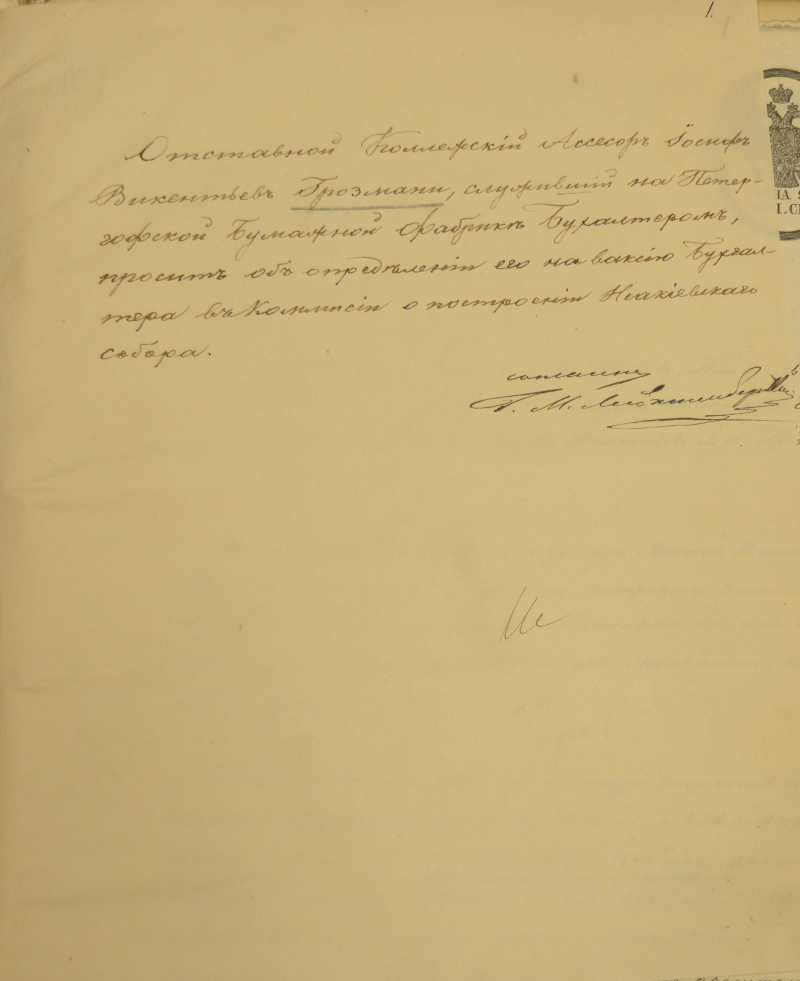 1.
Отставной Коллежскій Ассесоръ Іосифъ
Викентьевъ Грозмани, служившій на Петер-
гофской Бумажной Фабрикѣ Бухалтеромъ,
проситъ объ опредѣленіи его на ваксію Бухгал-
тера въ Коммисіи о построеніи Исакіевскаго
Собора.
Г. М. Лейхтенбергскій